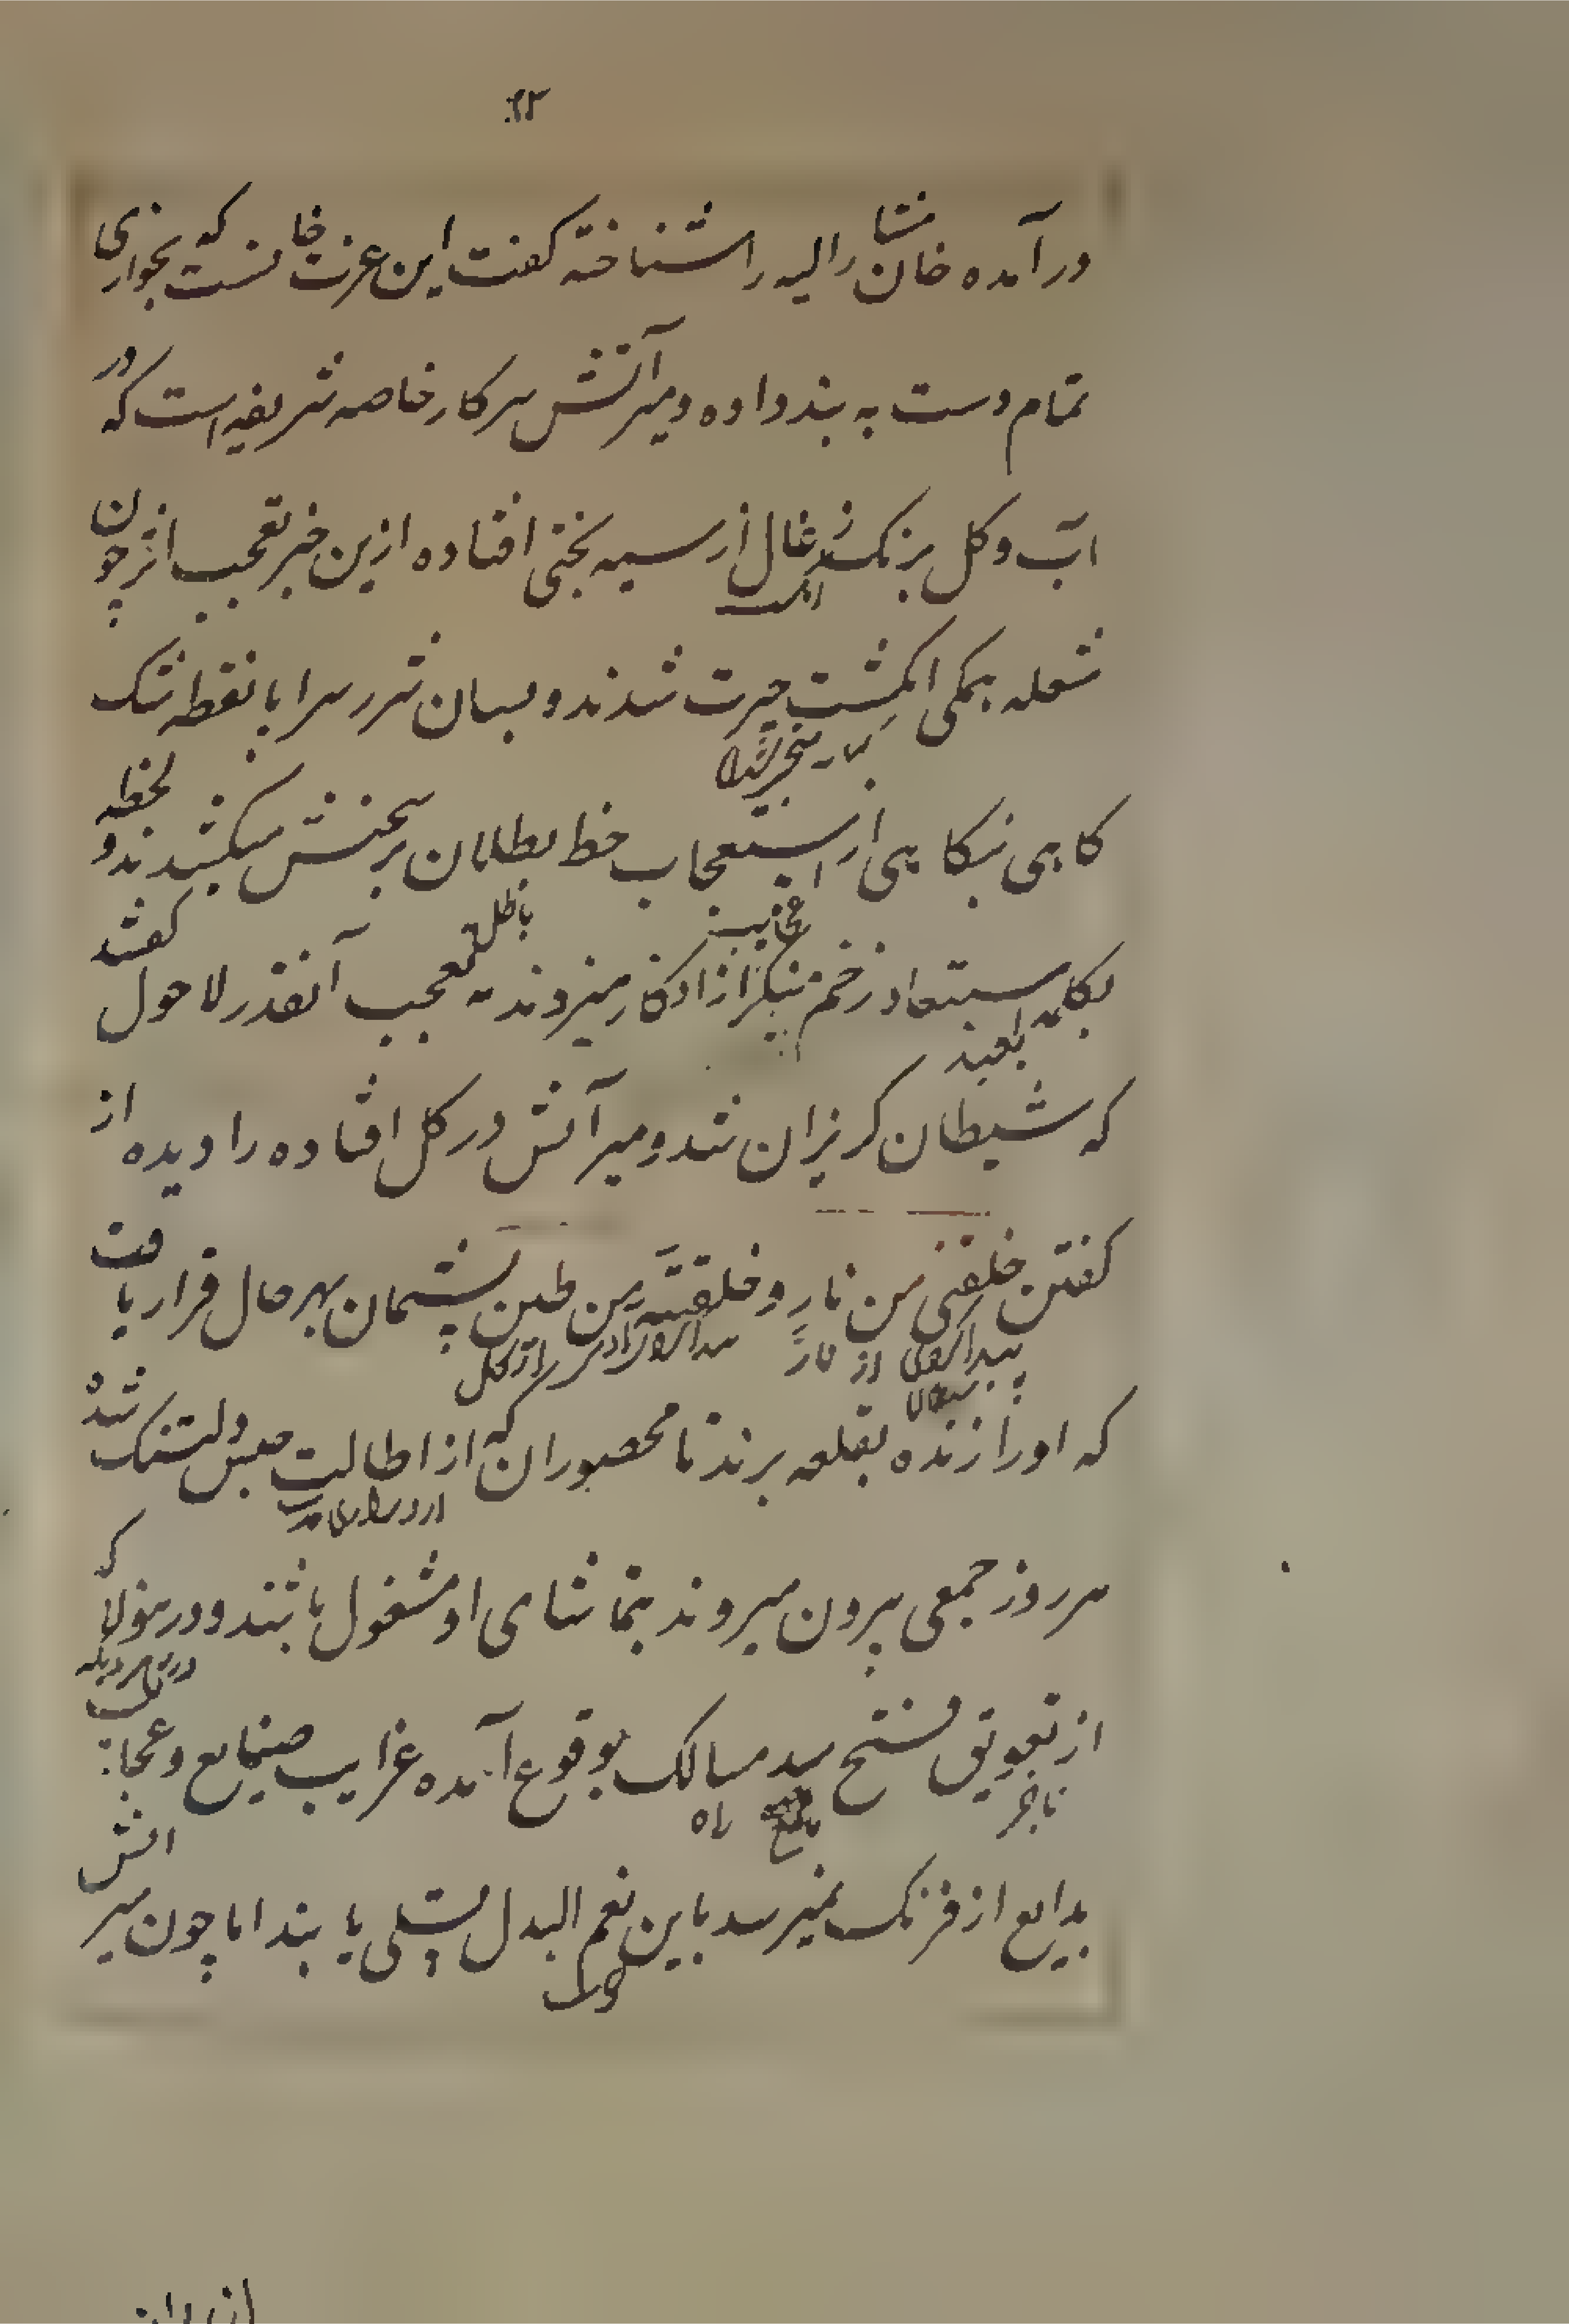 ۶۲
درآمده خان مشارالیه را شناخته کفت این عزت خانست که بخواری
تمام دست به بند داده و میرآتش سرکار خاصه شریفه است که در
آب و کل برنک زغال از سیه بختی افتاده ازین خبر تعجب اثر چون
شعله همکی انکشت حیرت شدند و بسان شرر سراپا نقطه شک
کاهی نکاهی از استعجاب خط بطلان بر سخنش میکشیدند و لحظه
باطل
بکلید استبعاد زخم بر میزدند تعجب آنقدر لا حول کفتند
بعید
که شیطان کریزان شد و میرآتش در کل افتاده را دیده از
کفتن خلقتنی من نار و خلقته من طین پشیمان بهرحال قرار یافت
از نار از کل
که او را زنده بقلعه برند تا محصوران که از اطالت حبس دلتنک شده
هر روز جمعی بیرون میروند بتماشای او مشغول باشند و درینولا که
از تعویق فتح سد مسالک بوقوع آمده غرایب صنایع و عجایب
راه
بدایع از فرنک نمیرسد باین نعم البدل تسلی یابند اما چون میر آتش